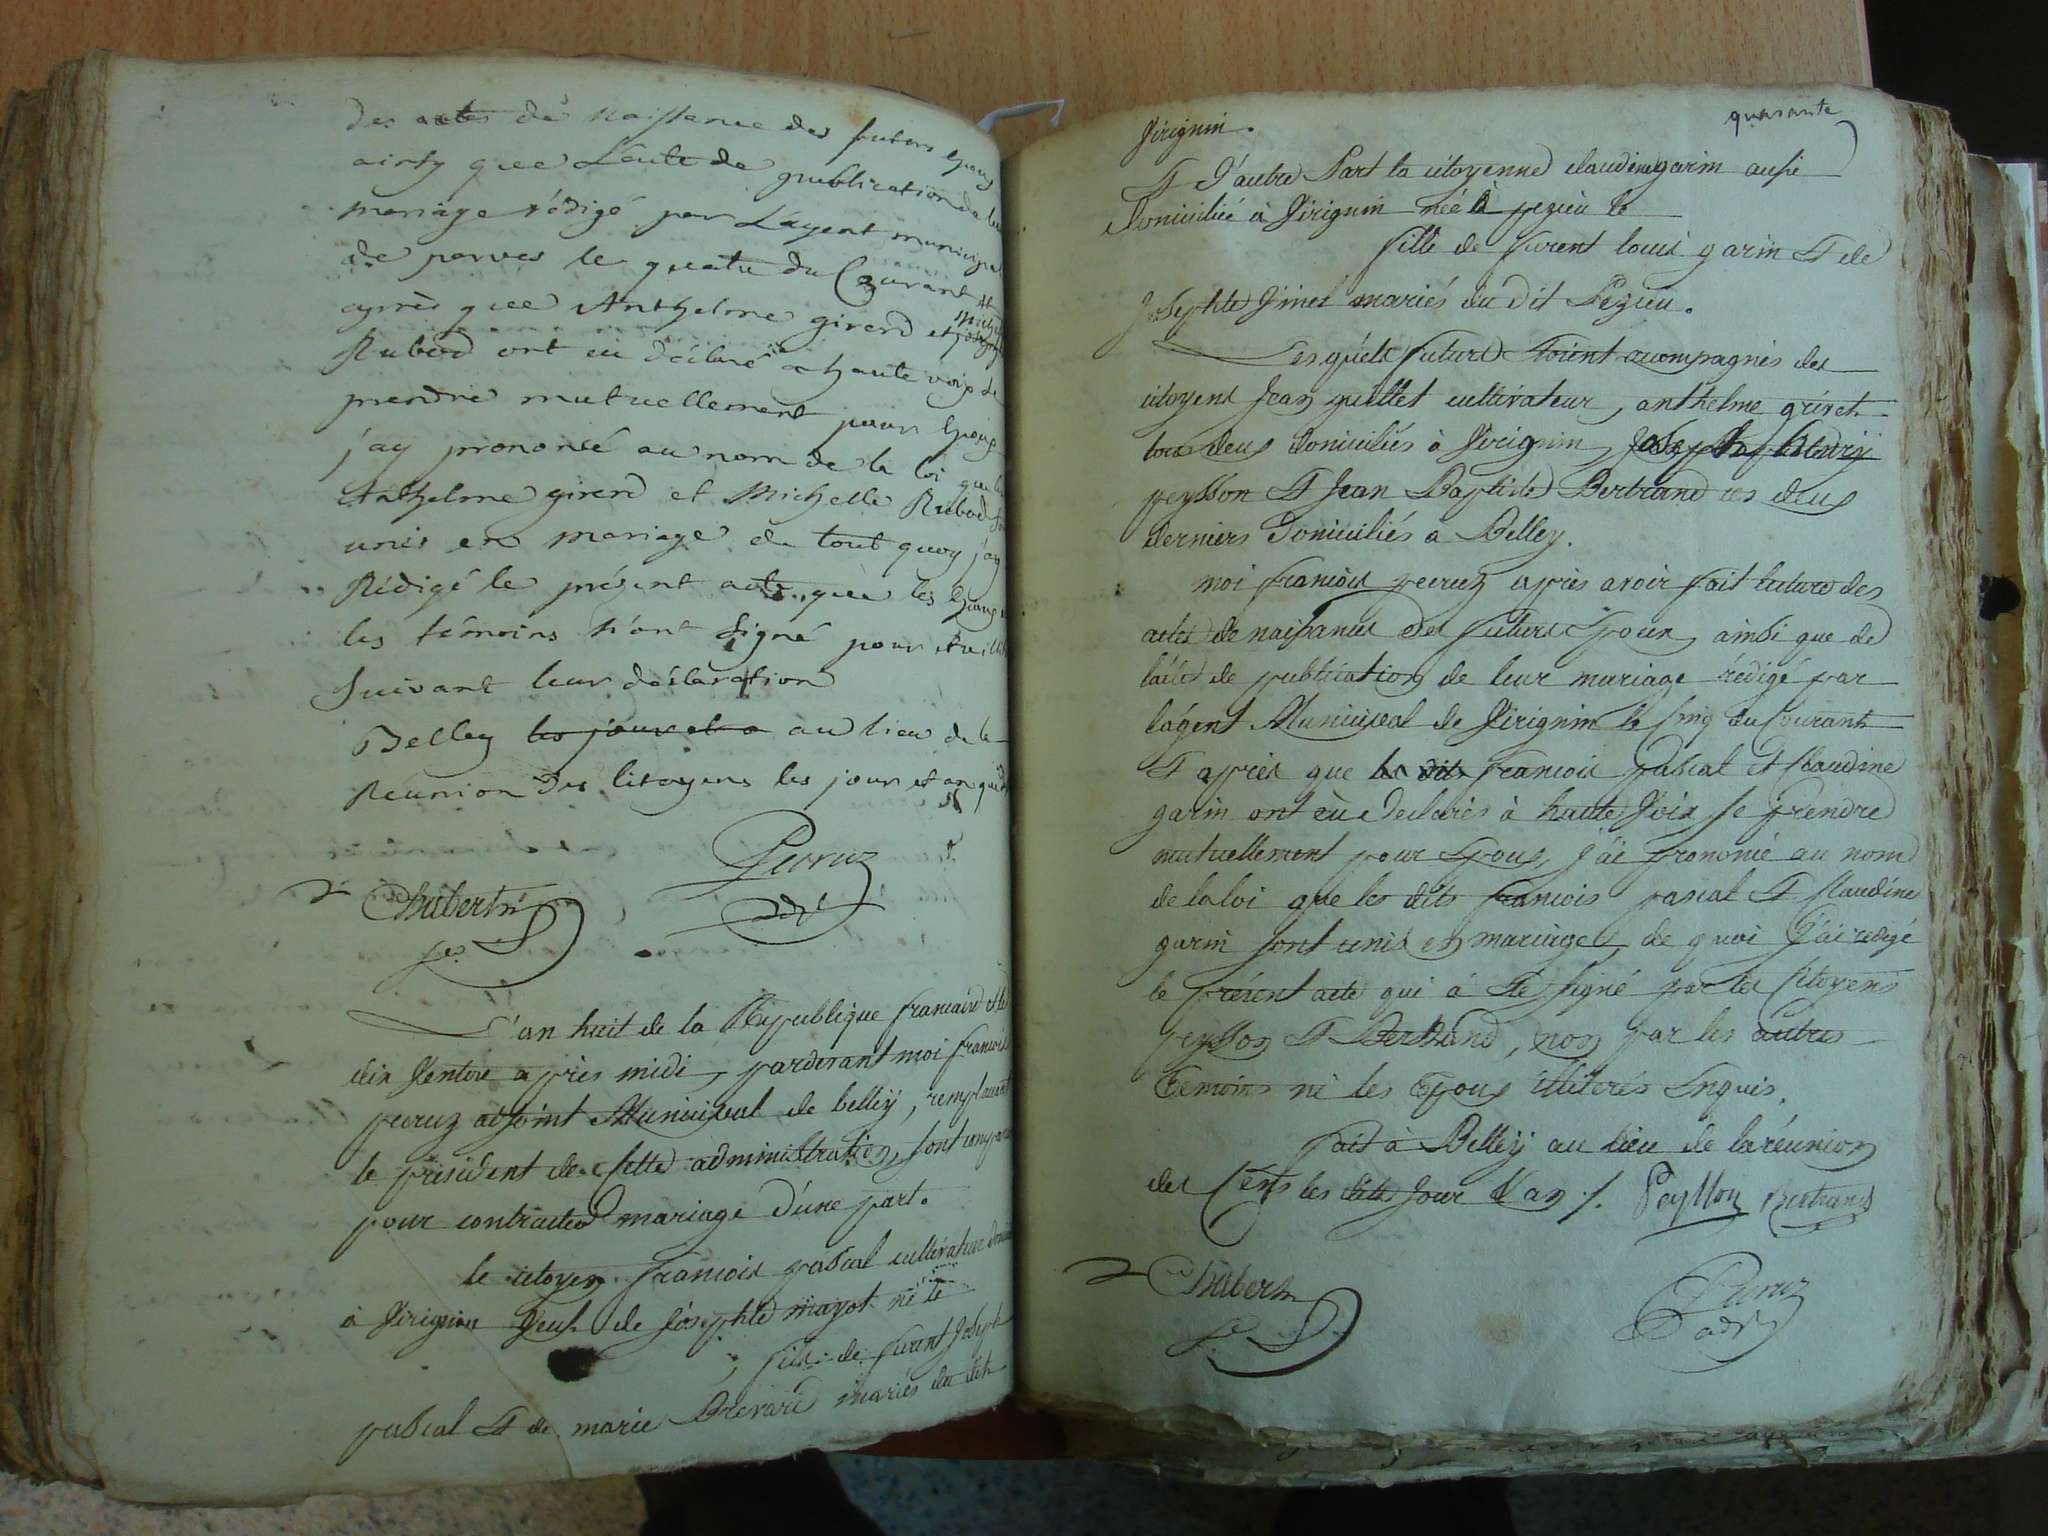 des actes de Naissance des futurs Epoux
ainsy que L'acte de publication de leur
mariage rédigé par L'agent municipal
de parves le quatre du Courant et
après que Anthelme girerd et Michelle
Rubod ont eu déclaré a haute voix se
prendre mutuellement pour Epoux
j'ay prononcé au nom de la loi que les
Anthelme girerd et Michelle Rubod sont
unis en mariage de tout quoy j'ay
Rédigé le présent acte que les Epoux ni
les témoins n'ont signé pour etre illit
suivant leur déclaration
Belley les jour et a au lieu de la
Reunion des Citoyens les jour et an que dit
Perruz
adj.
Chabert
L'an huit de la République francaise et le
dix Ventose après midi, pardevant moi francois
perruz adjoint Municipal de belley, remplacant
le président de Cette administration, sont comparus
pour contracter mariage d'une part.
le citoyen francois pascal cultivateur domicilié
à Virignin Veuf de Josephte mayot né le
fils de furent Joseph
pascal Et de marie Brevard mariés du dit
quarante
Virignin.
Et d'autre Part la citoyenne claudine garin aussi
domiciliée à Virignin née à pezieu le
fille de furent louis garin Et de
Josephte Vinet mariés du dit Pezieu.
Lesquels futurs Etoient accompagnés des
citoyens Jean guillet cultivateur, anthelme grivet
tous deux domiciliés à Virignin, Joseph henry
peysson Et Jean Baptiste Bertrand ces deux
derniers domiciliés a Belley.
moi francois perruz apres avoir fait lecture des
actes de naissances des futurs Epoux, ainsi que de
l'acte de publication de leur mariage rédigé par
l'agent Municipal de Virignin le Cinq du Courant
Et après que les dits francois pascal et Claudine
garin ont eu declarés à haute Voix se prendre
mutuellement pour Epoux, J'ai prononcé au nom
de la loi que les dits francois pascal Et Claudine
garin sont unis en mariage, de quoi J'ai redigé
le présent acte qui à Eté signé par les Citoyens
peysson Et Bertrand, non par les autres
Temoins ni les Epoux illiterés Enquis.
fait à Belley au lieu de la réunion
des Cens les dits Jour Et an /. Peysson Bertrand
Chabert
Perruz
adj